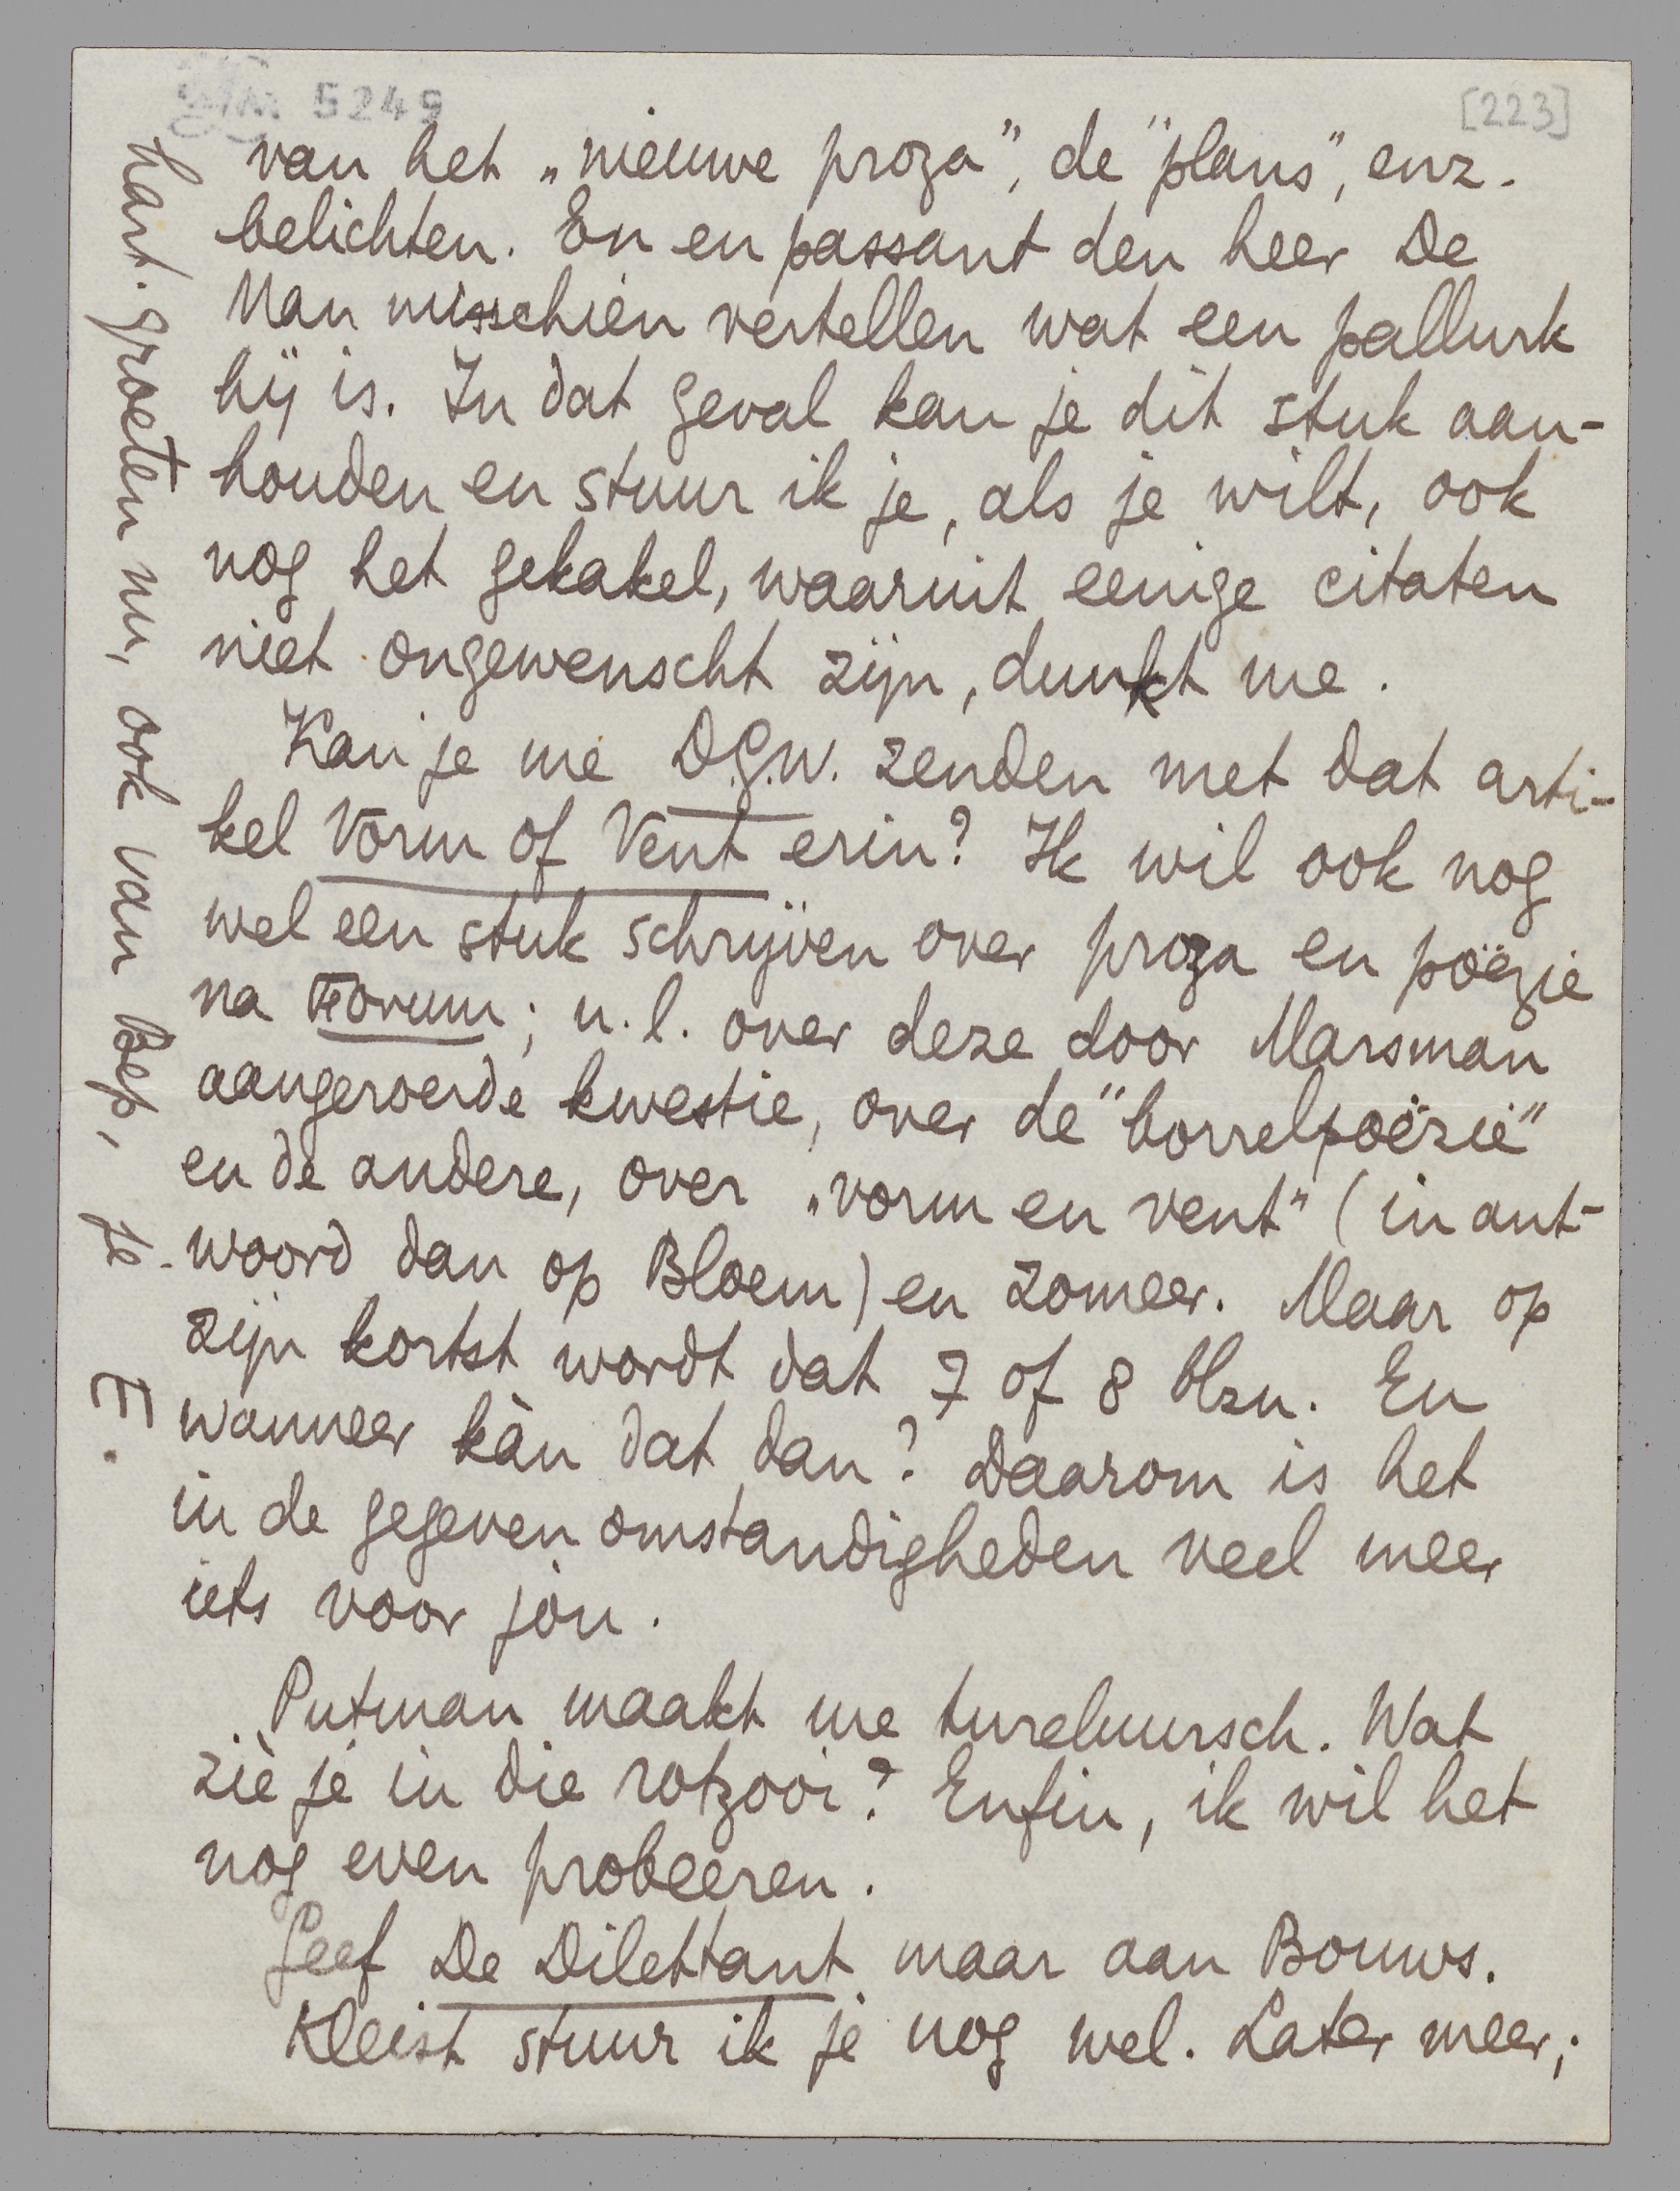 5249
[223]
van het „nieuwe proza”, de "plans", enz.
belichten. En en passant den heer De
Man misschien vertellen wat een pallurk
hij is. In dat geval kan je dit stuk aan-
houden en stuur ik je, als je wilt, ook
nog het gekakel, waaruit eenige citaten
niet ongewenscht zijn, dunkt me.
Kan je me D.G.W. zenden met dat arti-
kel Vorm of Vent erin? Ik wil ook nog
wel een stuk schrijven over proza en poëzie
na Forum; n.l. over deze door Marsman
aangeroerde kwestie, over de "borrelpoëzie"
en de andere, over „vorm en vent" (in ant-
woord dan op Bloem) en zomeer. Maar op
zijn kortst wordt dat 7 of 8 blzn. En
wanneer kàn dat dan? Daarom is het
in de gegeven omstandigheden veel meer
iets voor jòu.
Putman maakt me tureluursch. Wat
zie je in die rotzooi? Enfin, ik wil het
nog even probeeren.
Geef De Dilettant maar aan Bouws.
Kleist stuur ik je nog wel. Later meer;
hart. groeten nu, ook van Bep, je
E.